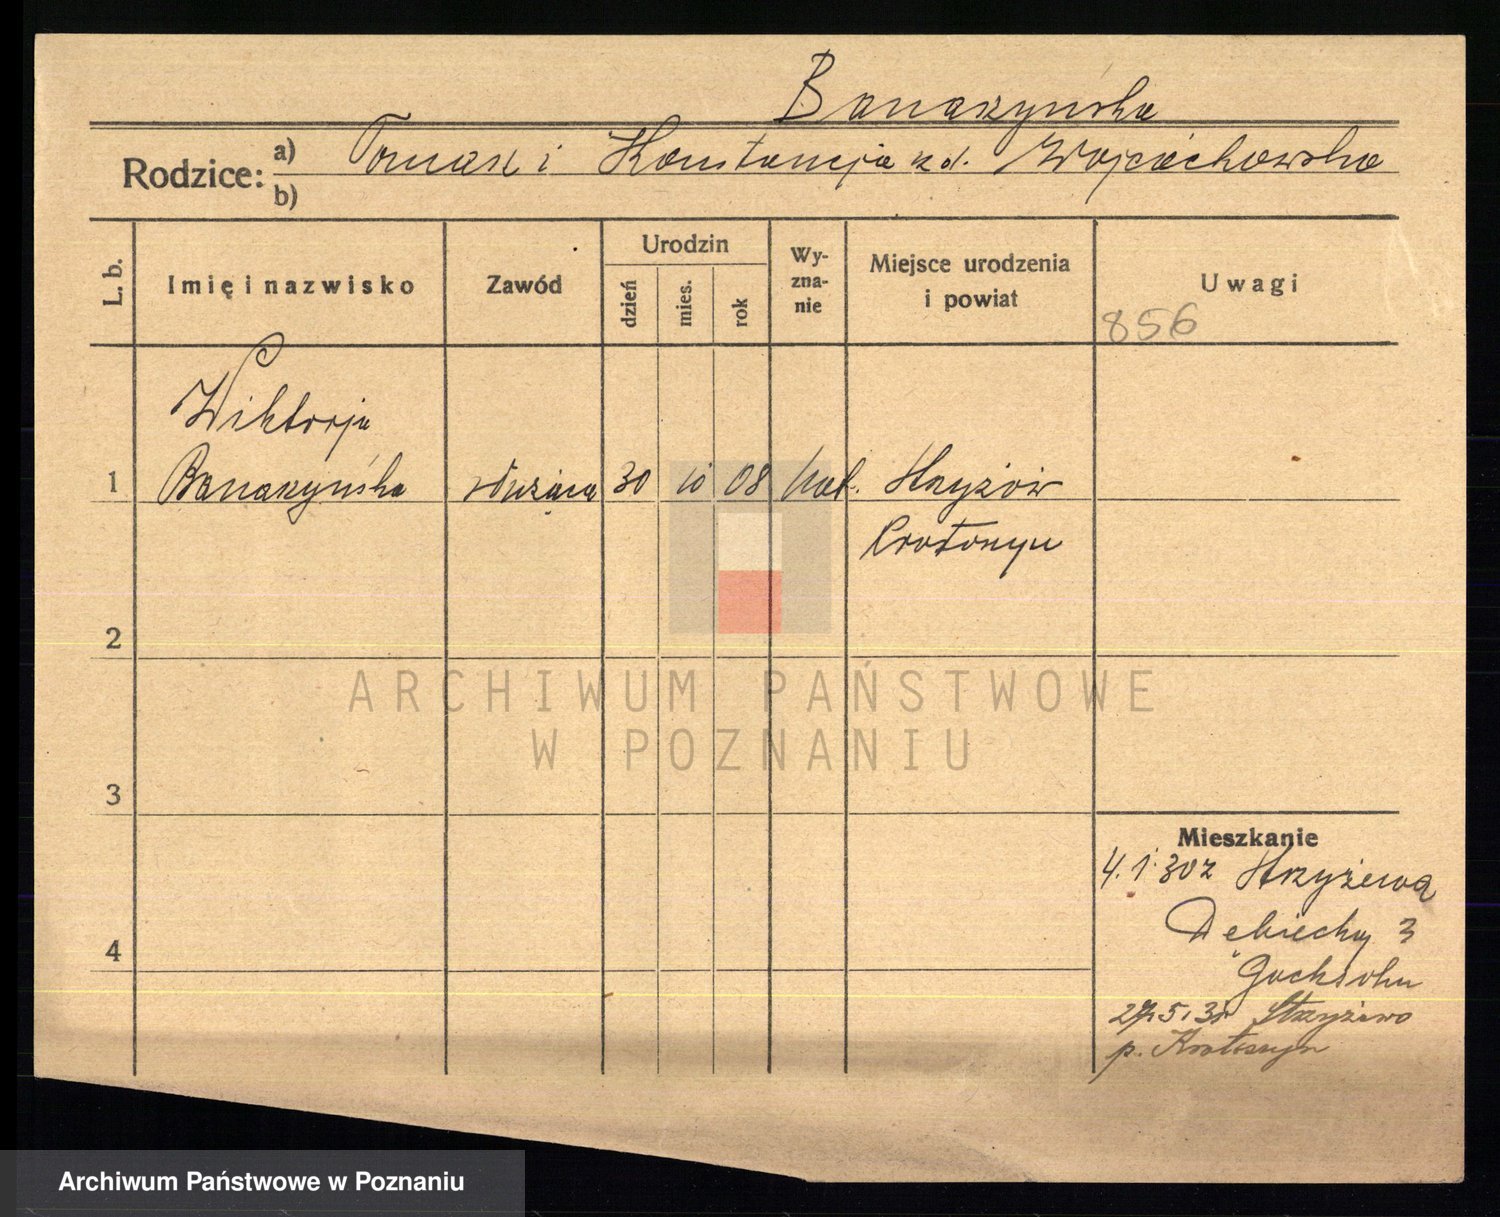 Banaszyńska
Rodzice: a) Tomasz i Konstancja z d. Wojciechowska
b)
L. b.
Imię i nazwisko
Zawód
Urodzin
dzień
mies.
rok
Wy-
zna-
nie
Miejsce urodzenia
i powiat
Uwagi
856
Wiktorja
1 Banaszyńska służąca 30 10 08 kat. Strzyżew
Krotoszyn
2
3
4
Mieszkanie
4.1.30 z Strzyżewa
Dębiecka 3
27.5.30 Strzyżewo
p. Krotoszyn
ARCHIWUM PAŃSTWOWE
W POZNANIU
Archiwum Państwowe w Poznaniu